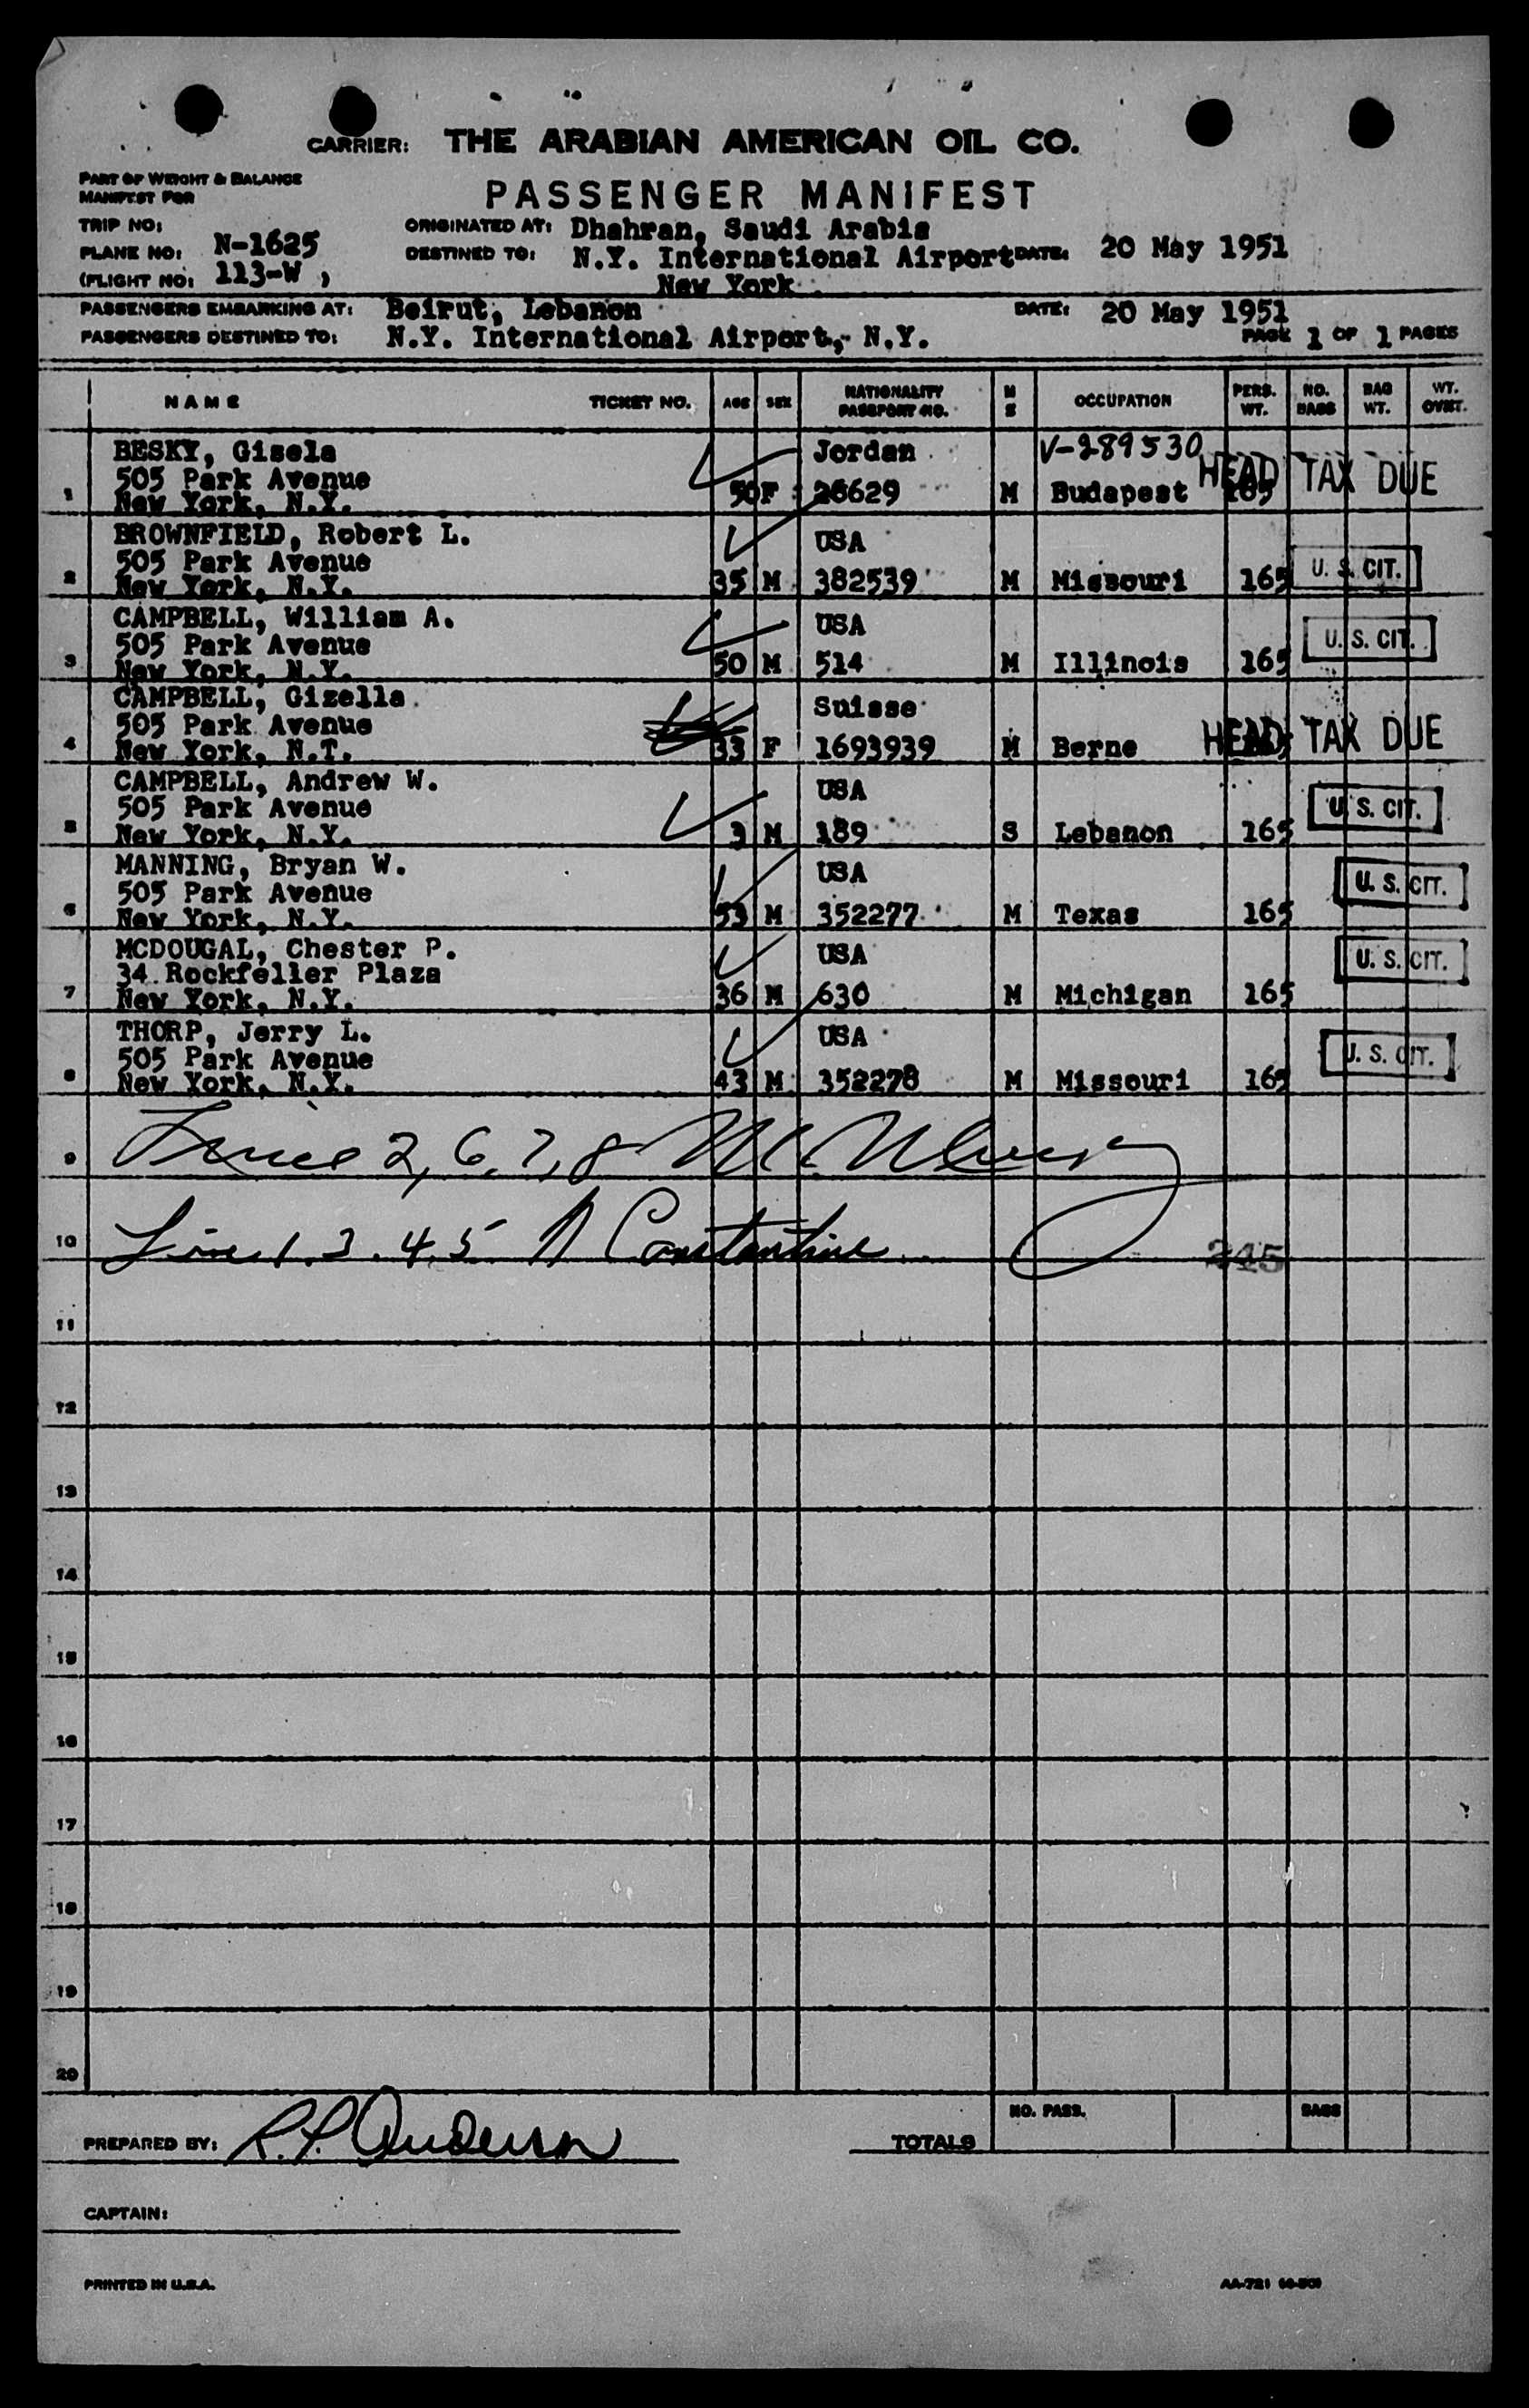 CARRIER: THE ARABIAN AMERICAN OIL CO.
PART OF WEIGHT & BALANCE
MANIFEST FOR
PASSENGER MANIFEST
TRIP NO:
ORIGINATED AT: Dhahran, Saudi Arabia
PLANE NO: N-1625
DESTINED TO: N.Y. International Airport DATE: 20 May 1951
(FLIGHT NO: 113-W )
New York
PASSENGERS EMBARKING AT: Beirut, Lebanon DATE: 20 May 1951
PASSENGERS DESTINED TO: N.Y. International Airport, N.Y. PAGE 1 OF 1 PAGES
NAME TICKET NO. AGE SEX NATIONALITY PASSPORT NO. M S OCCUPATION PERS. WT. NO. BAGS BAG WT. WT. OVWT.
BESKY, Gisela Jordan V-289530
505 Park Avenue HEAD TAX DUE
1 New York, N.Y. 50 F 26629 M Budapest 165
BROWNFIELD, Robert L. USA
505 Park Avenue U. S. CIT.
2 New York, N.Y. 35 M 382539 M Missouri 165
CAMPBELL, William A. USA
505 Park Avenue U. S. CIT.
3 New York, N.Y. 50 M 514 M Illinois 165
CAMPBELL, Gizella Suisse
505 Park Avenue HEAD TAX DUE
4 New York, N.T. 33 F 1693939 M Berne
CAMPBELL, Andrew W. USA
505 Park Avenue U. S. CIT.
5 New York, N.Y. 3 M 189 S Lebanon 165
MANNING, Bryan W. USA
505 Park Avenue U. S. CIT.
6 New York, N.Y. 53 M 352277 M Texas 165
MCDOUGAL, Chester P. USA
34 Rockfeller Plaza U. S. CIT.
7 New York, N.Y. 36 M 630 M Michigan 165
THORP, Jerry L. USA
505 Park Avenue U. S. CIT.
8 New York, N.Y. 43 M 352278 M Missouri 165
9 2, 6, 7, 8
10 Line 1. 3. 4. 5 Constantine 245
11
12
13
14
15
16
17
18
19
20
NO. PASS. BAGS
PREPARED BY: R.P. Anderson TOTALS
CAPTAIN:
PRINTED IN U.S.A. AA-721